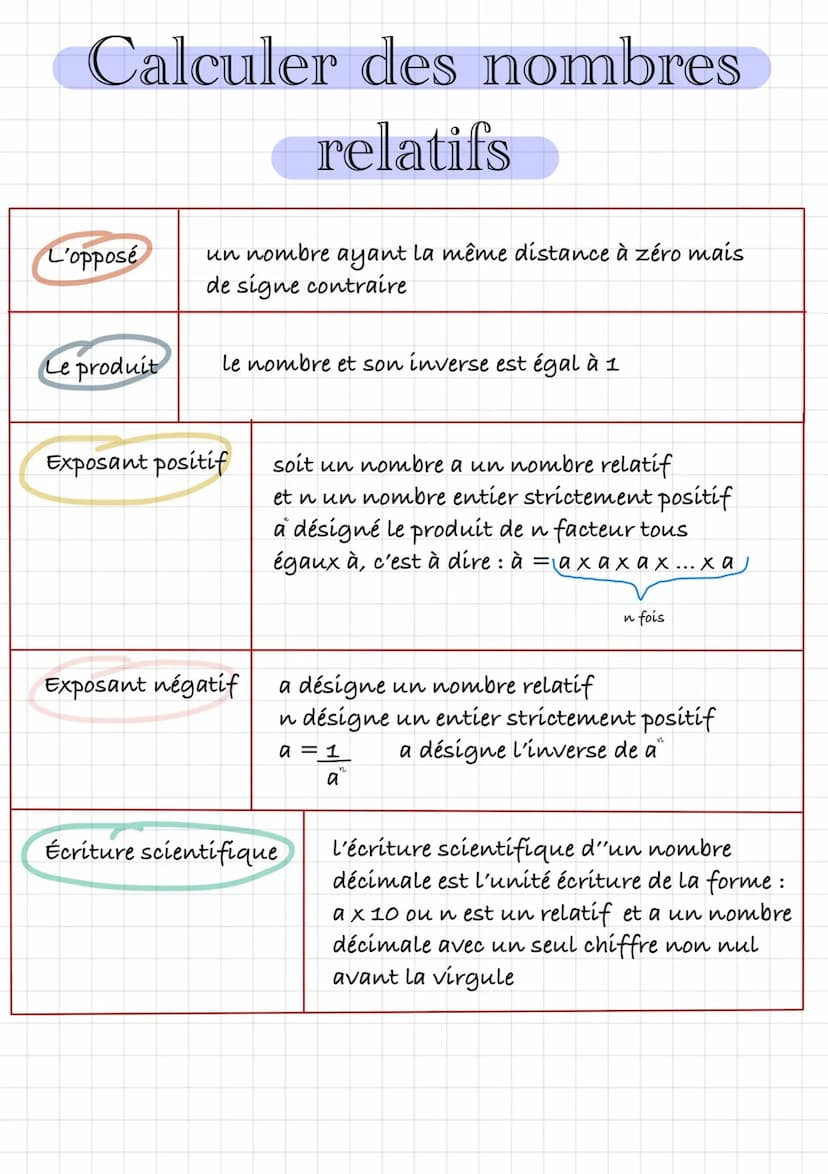 Calculer des nombres
relatifs
L'opposé
un nombre ayant la même distance à zéro mais
de signe contraire
Le produit
le nombre et son inverse est égal à 1
Exposant positif
soit un nombre a un nombre relatif
et n un nombre entier strictement positif
aⁿ désigné le produit de n facteur tous
égaux à, c'est à dire : à = a x a x a x ... x a
n fois
Exposant négatif
a désigne un nombre relatif
n désigne un entier strictement positif
a = 1/aⁿ a désigne l'inverse de aⁿ
Écriture scientifique
l'écriture scientifique d''un nombre
décimale est l'unité écriture de la forme :
a x 10 ou n est un relatif et a un nombre
décimale avec un seul chiffre non nul
avant la virgule